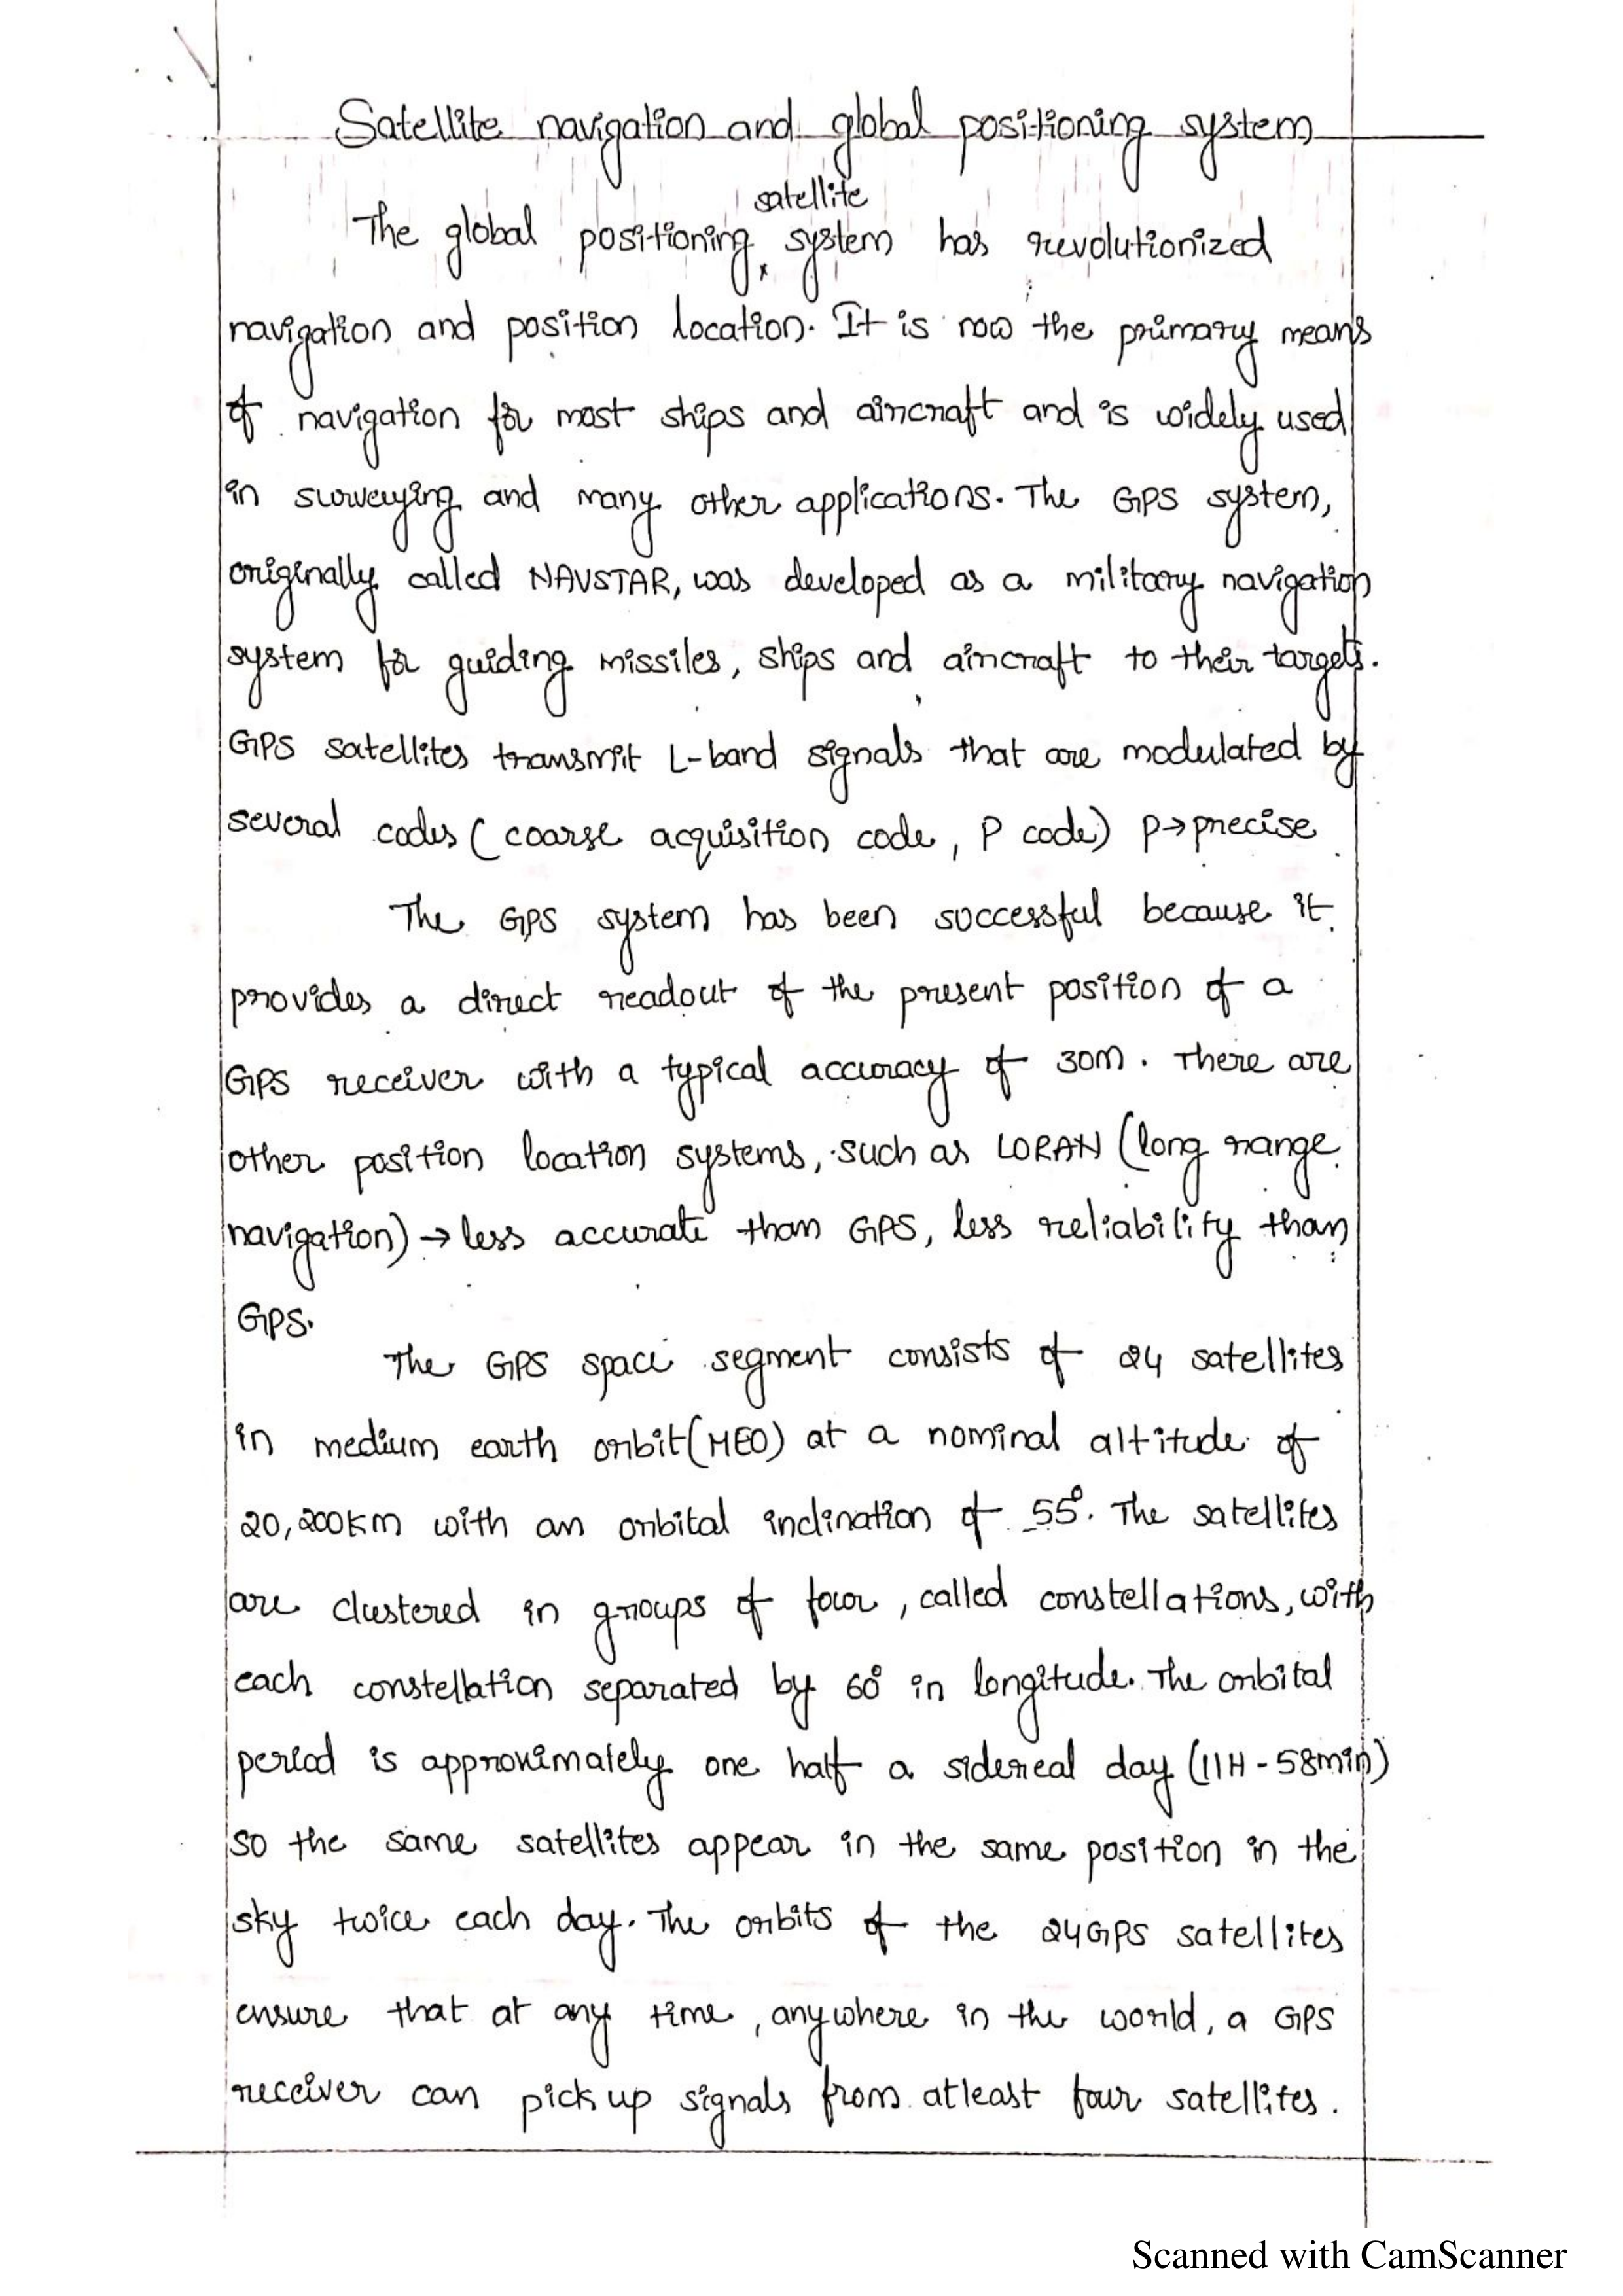 Satellite navigation and global positioning system
satellite
The global positioning system has revolutionized
navigation and position location. It is now the primary means
of navigation for most ships and aircraft and is widely used
in surveying and many other applications. The GPS system,
originally called NAVSTAR, was developed as a military navigation
system for guiding missiles, ships and aircraft to their targets.
GPS satellites transmit L-band signals that are modulated by
several codes (coarse acquisition code, P code) P→precise
The GPS system has been successful because it
provides a direct readout of the present position of a
GPS receiver with a typical accuracy of 30m. There are
other position location systems, such as LORAN (long range
navigation) → less accurate than GPS, less reliability than
GPS.
The GPS space segment consists of 24 satellites
in medium earth orbit (MEO) at a nominal altitude of
20,200km with an orbital inclination of 55°. The satellites
are clustered in groups of four, called constellations, with
each constellation separated by 60° in longitude. The orbital
period is approximately one half a sidereal day (11H - 58min)
so the same satellites appear in the same position in the
sky twice each day. The orbits of the 24 GPS satellites
ensure that at any time, anywhere in the world, a GPS
receiver can pick up signals from atleast four satellites.
Scanned with CamScanner